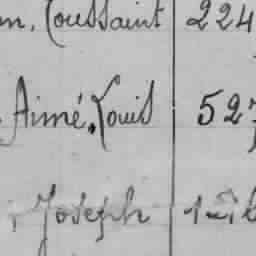 m. Toussaint 224
Aimé. Louis 527
Joseph